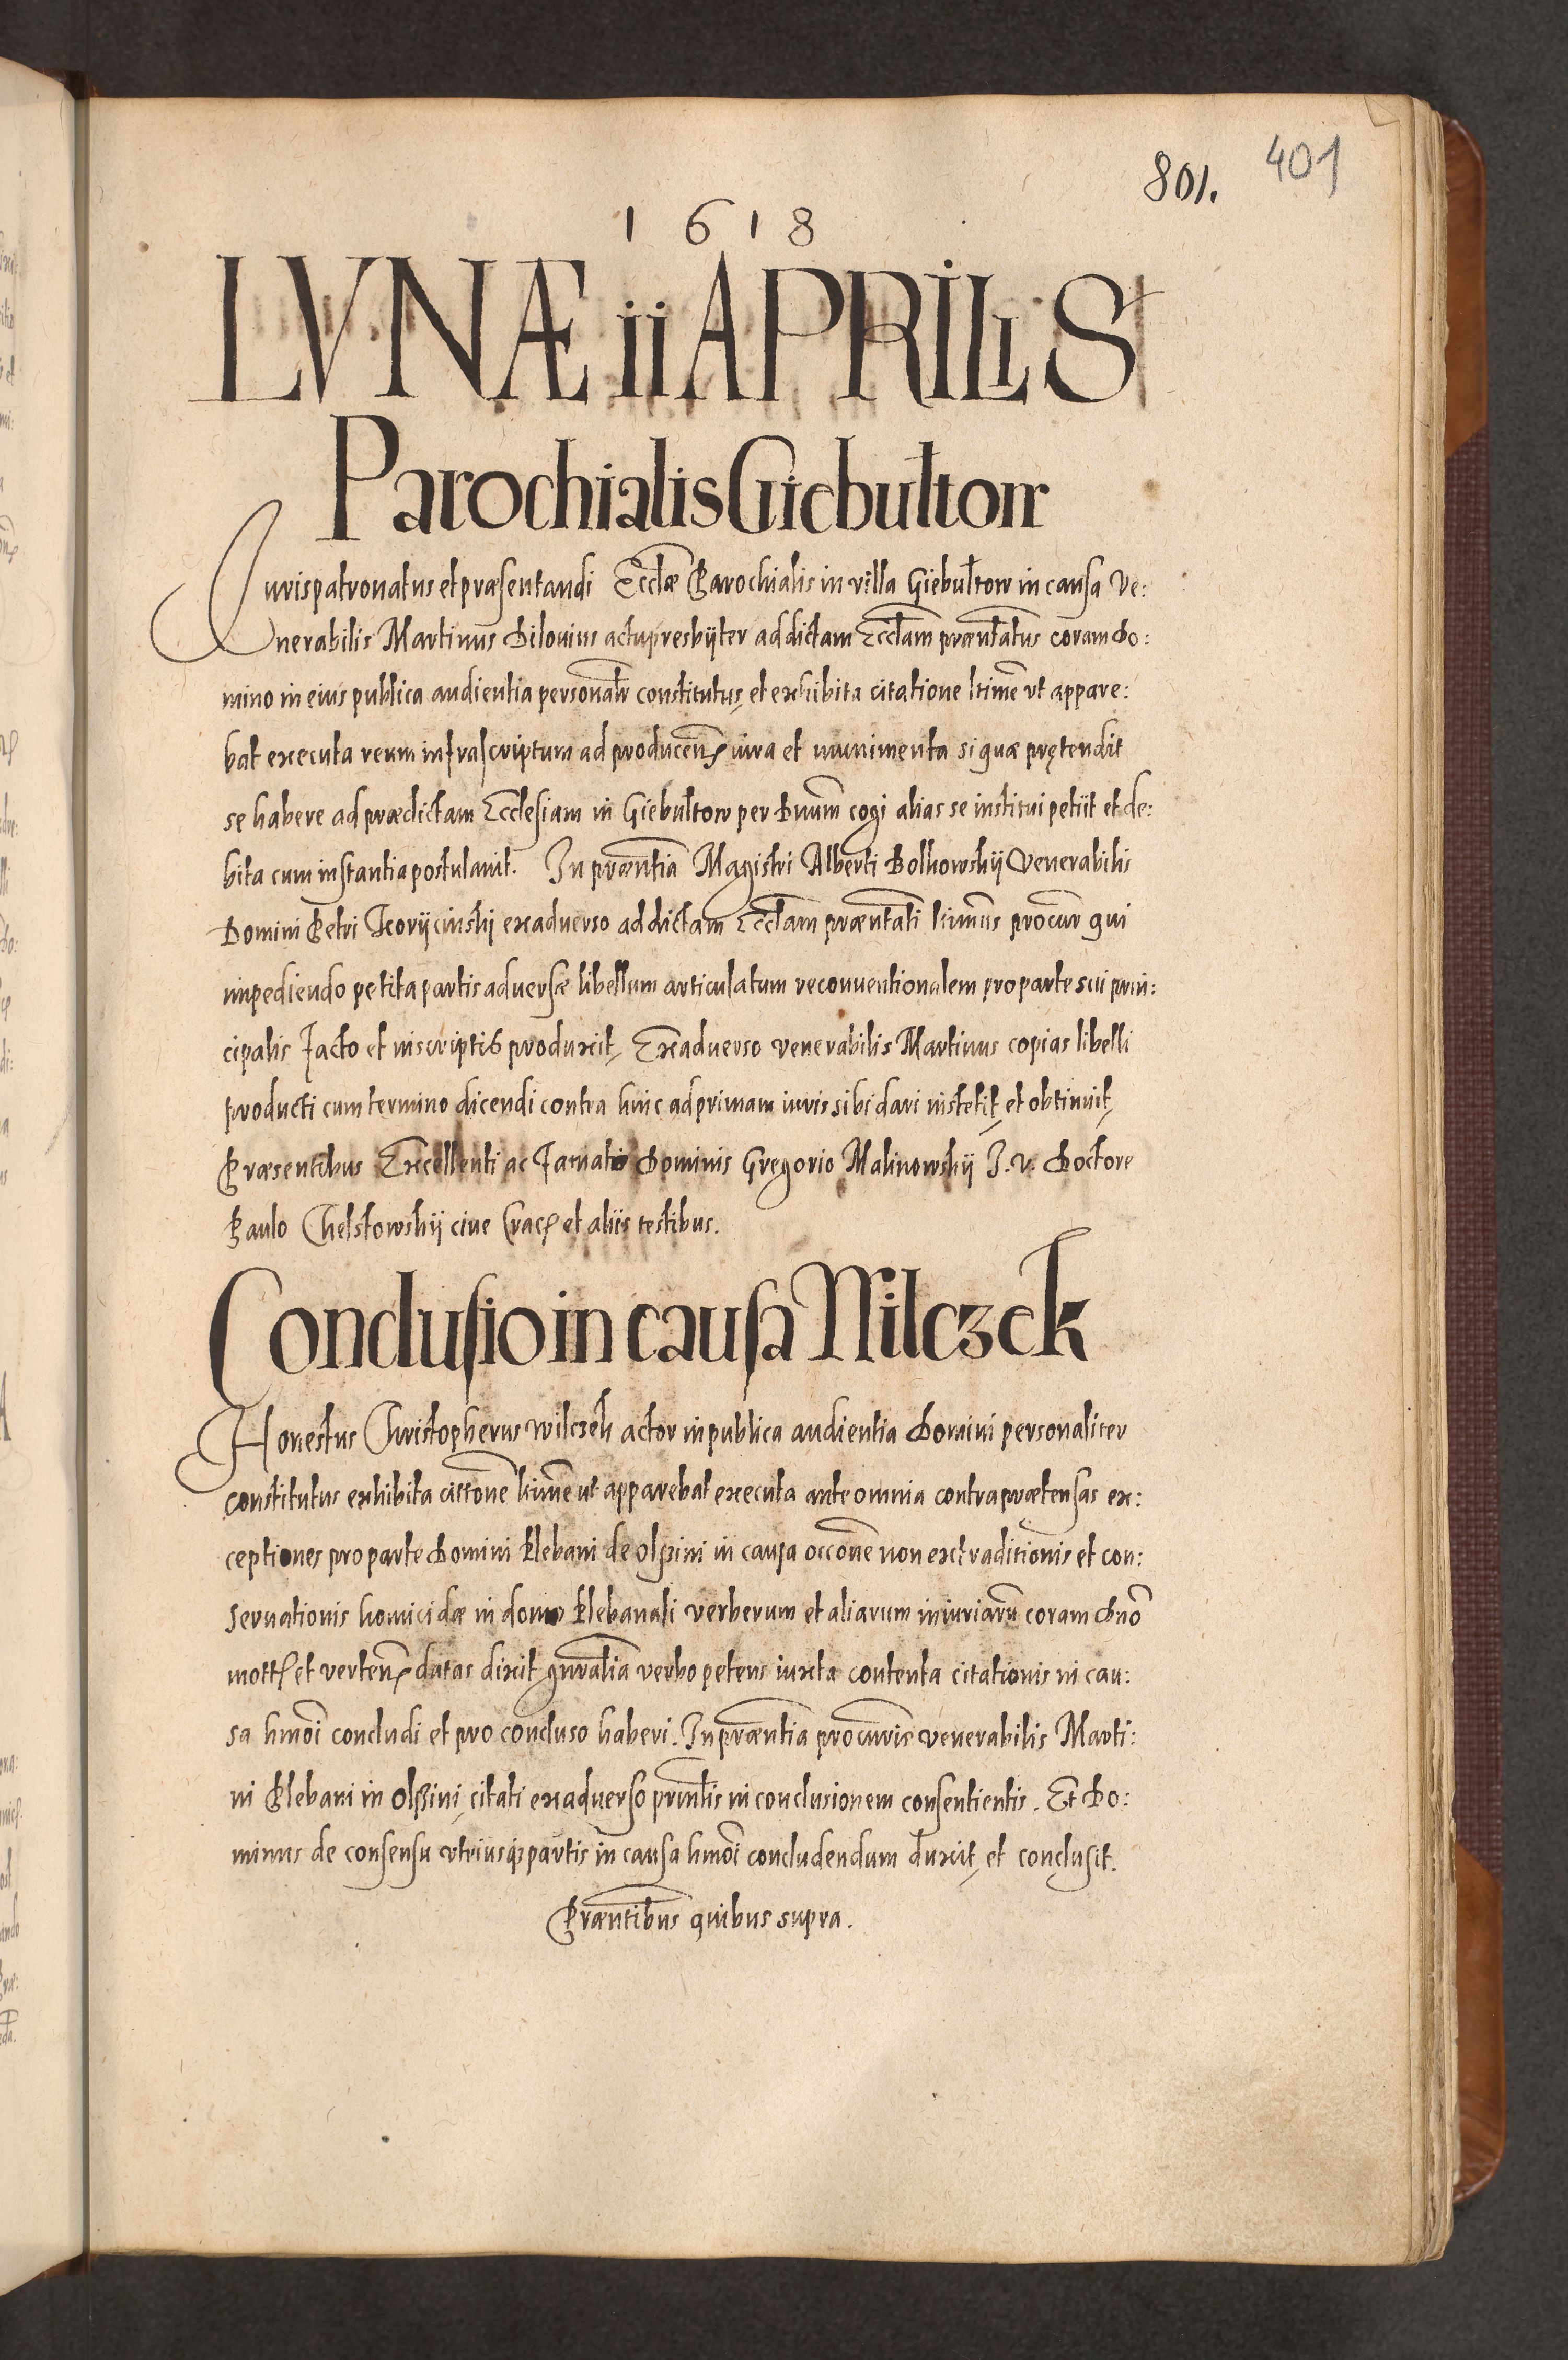 801. 401
1618
LVNÆ ii APRILIS
Parochialis Giebułtow
Iurispatronatus et præsentandi Eccłæ Parochialis in villa Giebułtow in causa Ve:
nerabilis Martinus Bilouius actu presbÿter ad dictam Ecctam præntatus coram Do:
mino in eius publica audientia personalr constitutus, et exhibita citatione ltime vt appare:
bat executa reum infrascriptum ad producen iura et munimenta si quæ prętendit
se habere ad prædictam Ecclesiam in Giebułtow per Dnum cogi alias se institui petiit et de:
bita cum instantia postulauit. In præntia Magistri Alberti Bolkowskÿ Venerabilis
Domini Petri exaduerso ad dictam Ecctam præntati ltimus procur qui
impediendo petita partis aduersæ libellum articulatum reconuentionalem pro parte sui prin:
cipalis facto et in scriptis produxit, Exaduerso venerabilis Martinus copias libelli
producti cum termino dicendi contra hinc ad primam iuris sibi dari institit, et obtinuit,
Præsentibus Excellenti ac famato Dominis Gregorio Malinowskÿ I. V. Doctore
Paulo Chelstowskÿ ciue Crac et aliis testibus.
Conclusio in causa Wilczek
Honestus Christopherus Wilczek actor in publica audientia Domini personaliter
constitutus exhibita cittone ltime ut apparebat executa ante omnia contra prætensas ex:
ceptiones pro parte Domini Plebani de Olpini in causa occone non extraditionis et con:
seruationis homicidæ in domo Plebanali verberum et aliarum iniuriaru coram Dno
mott et verten datas dixit gnralia verbo petens iuxta contenta citationis in cau:
sa hmoi concludi et pro concluso haberi. In præntia procuris venerabilis Marti:
ni Plebani in Olpini, citati exaduerso prntis in conclusionem consentientis. Et Do:
minus de consensu vtriusq partis in causa hmoi concludendum duxit, et conclusit.
Præntibus quibus supra.